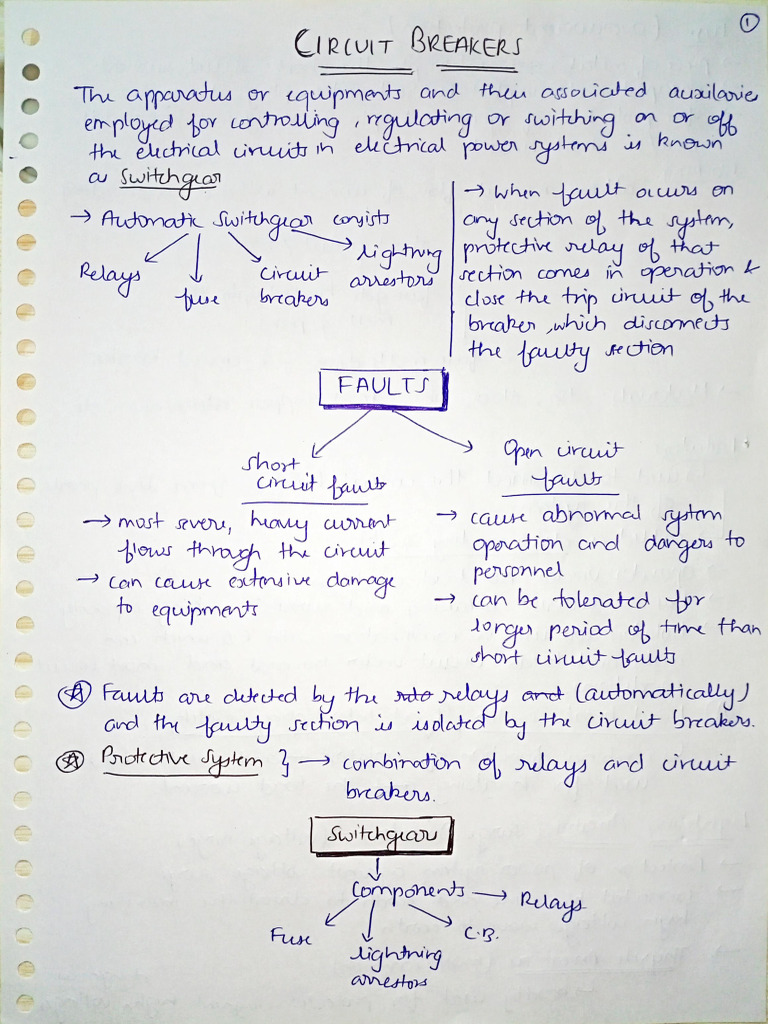 ①
CIRCUIT BREAKERS
The apparatus or equipments and their associated auxilaries
employed for controlling, regulating or switching on or off
the electrical circuits in electrical power systems is known
as Switchgear
→ Automatic Switchgear consists
Relays
fuse
Circuit
breakers
lightning
arrestors
→ When fault occurs on
any section of the system,
protective relay of that
section comes in operation &
close the trip circuit of the
breaker, which disconnects
the faulty section
FAULTS
Short
circuit faults
→ most severe, heavy current
flows through the circuit
→ can cause extensive damage
to equipments
Open circuit
faults
→ cause abnormal system
operation and dangers to
personnel
→ can be tolerated for
longer period of time than
short circuit faults
Faults are detected by the relays and (automatically)
and the faulty section is isolated by the circuit breakers.
Protective System } → combination of relays and circuit
breakers.
Switchgear
Components → Relays
Fuse
lightning
arrestors
C.B.